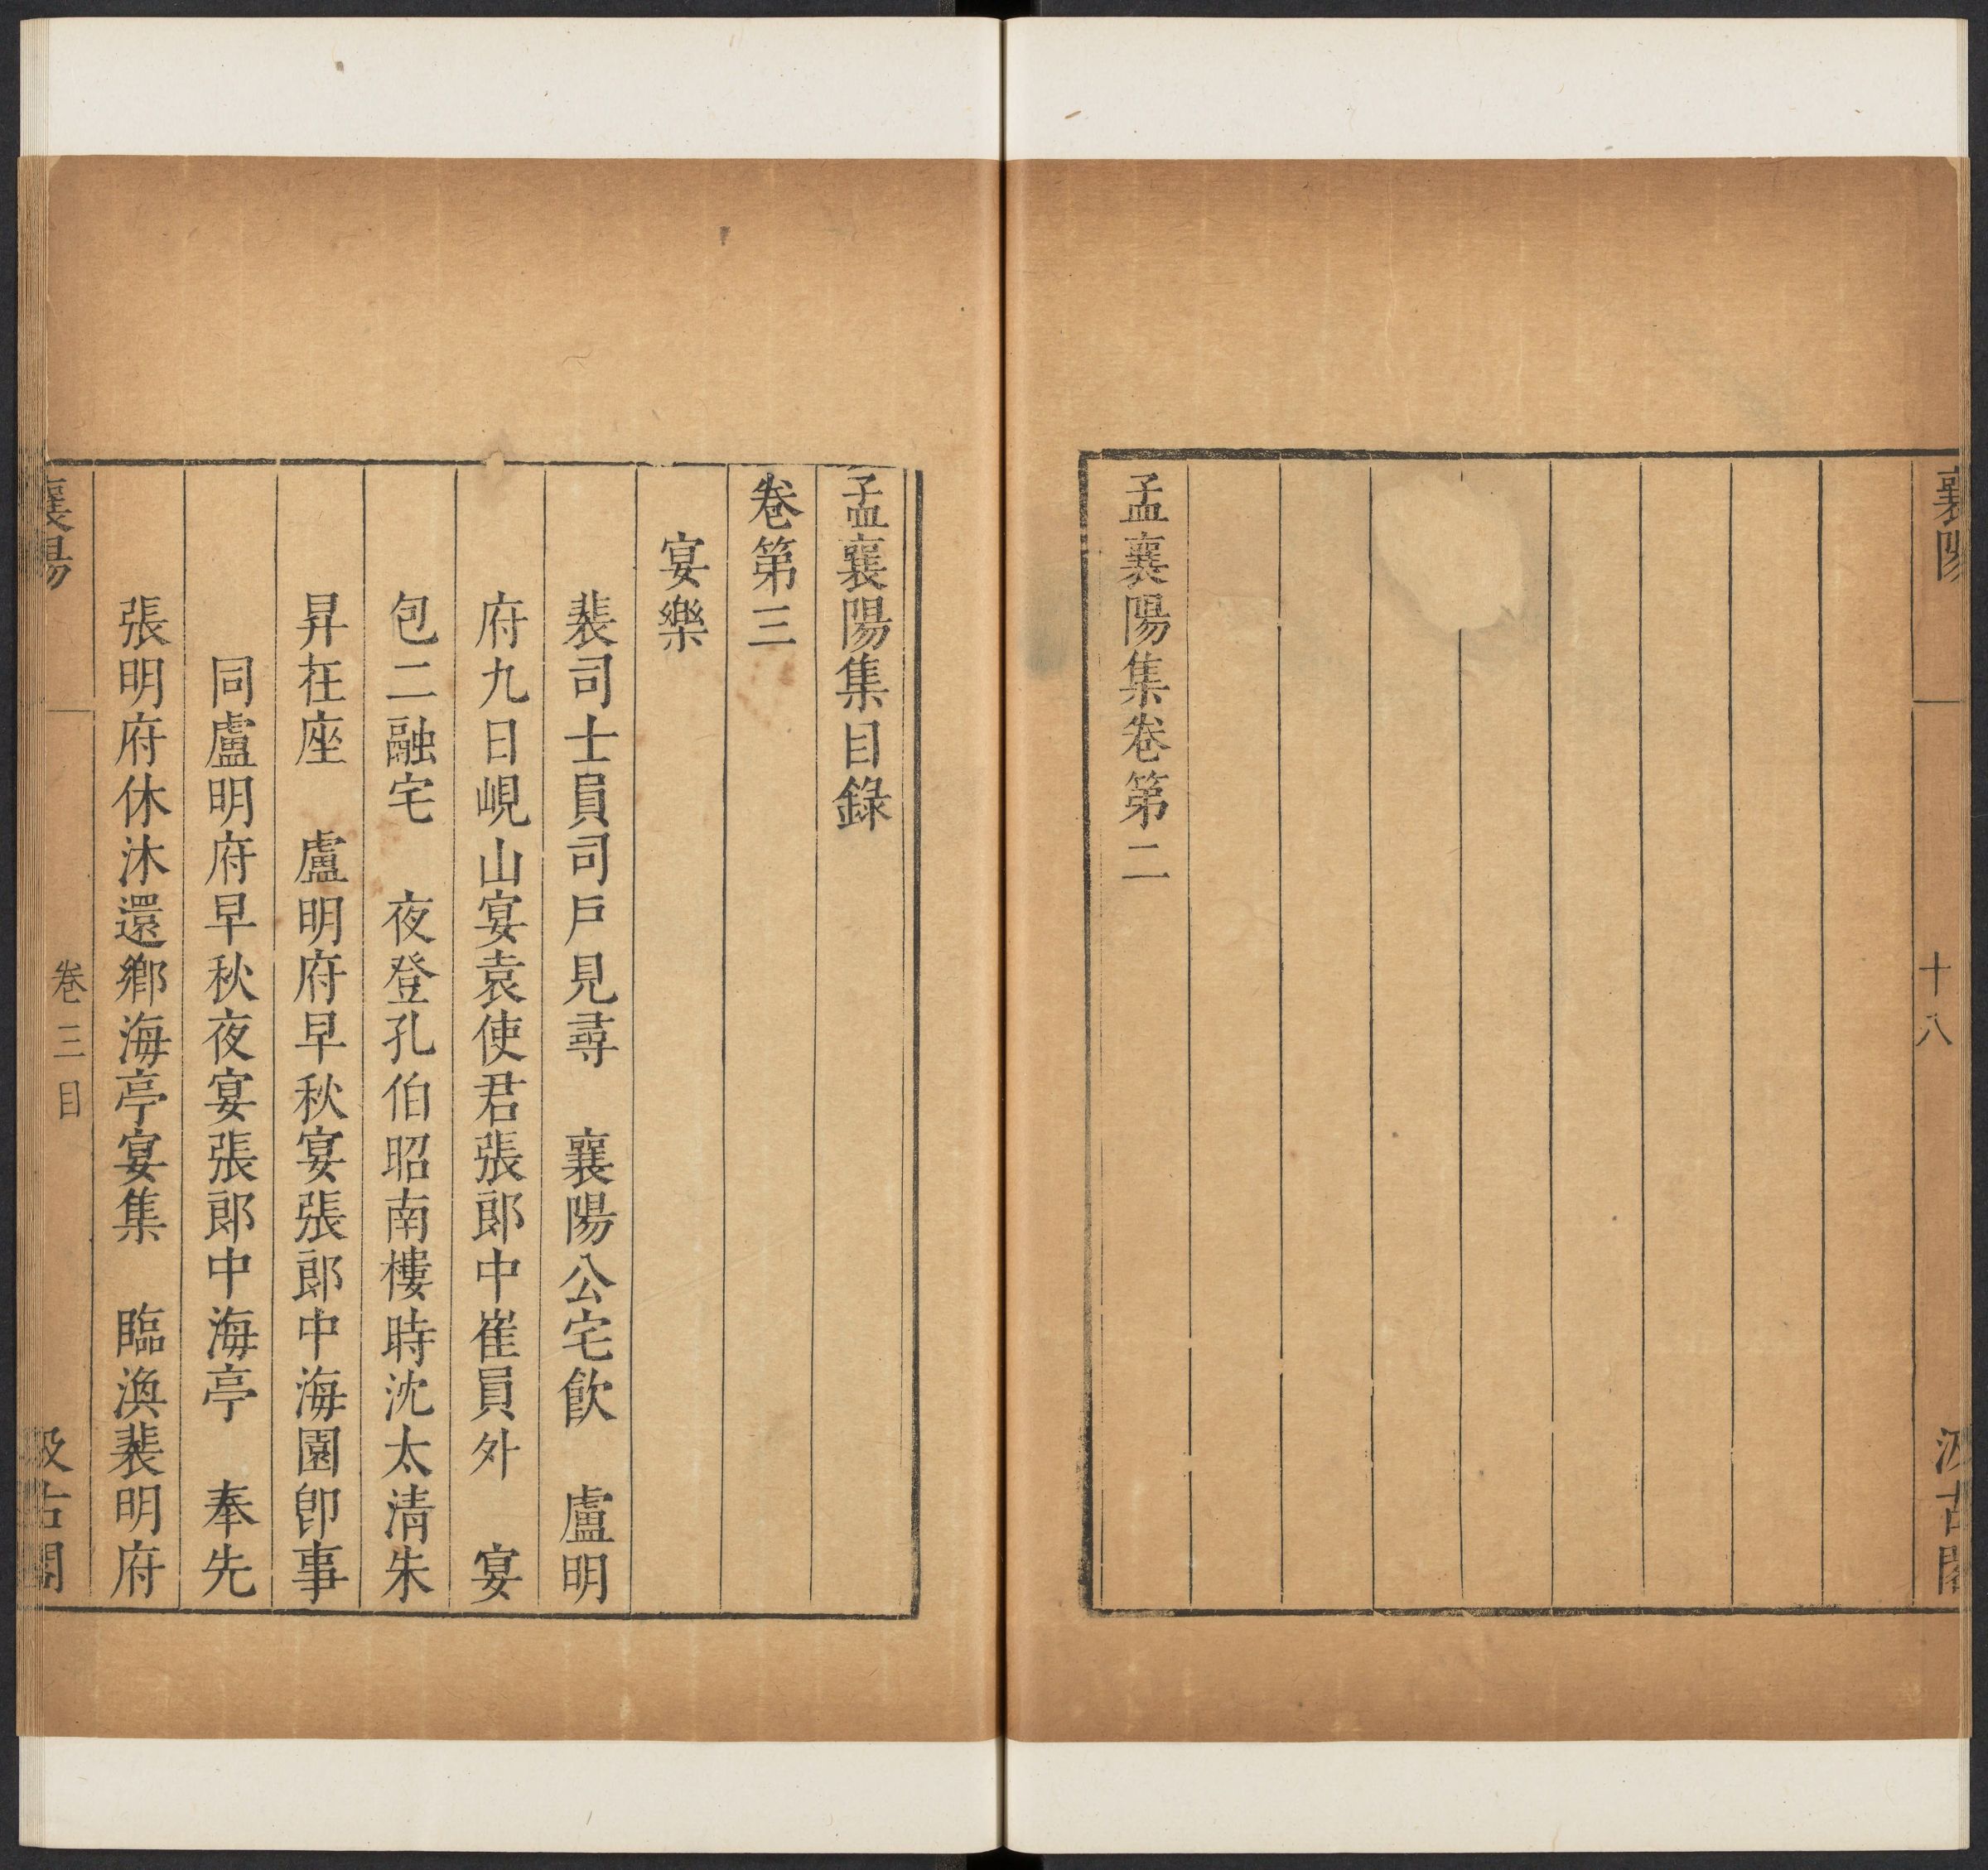 襄陽
十八
汲古閣
孟襄陽集卷第二
孟襄陽集目錄
卷第三
宴樂
裴司士員司戶見尋　襄陽公宅飲　盧明
府九日峴山宴袁使君張郎中崔員外　宴
包二融宅　夜登孔伯昭南樓時沈太清朱
昇在座　盧明府早秋宴張郎中海園卽事
同盧明府早秋夜宴張郎中海亭　奉先
張明府休沐還鄉海亭宴集　臨渙裴明府
襄陽
卷三目
汲古閣